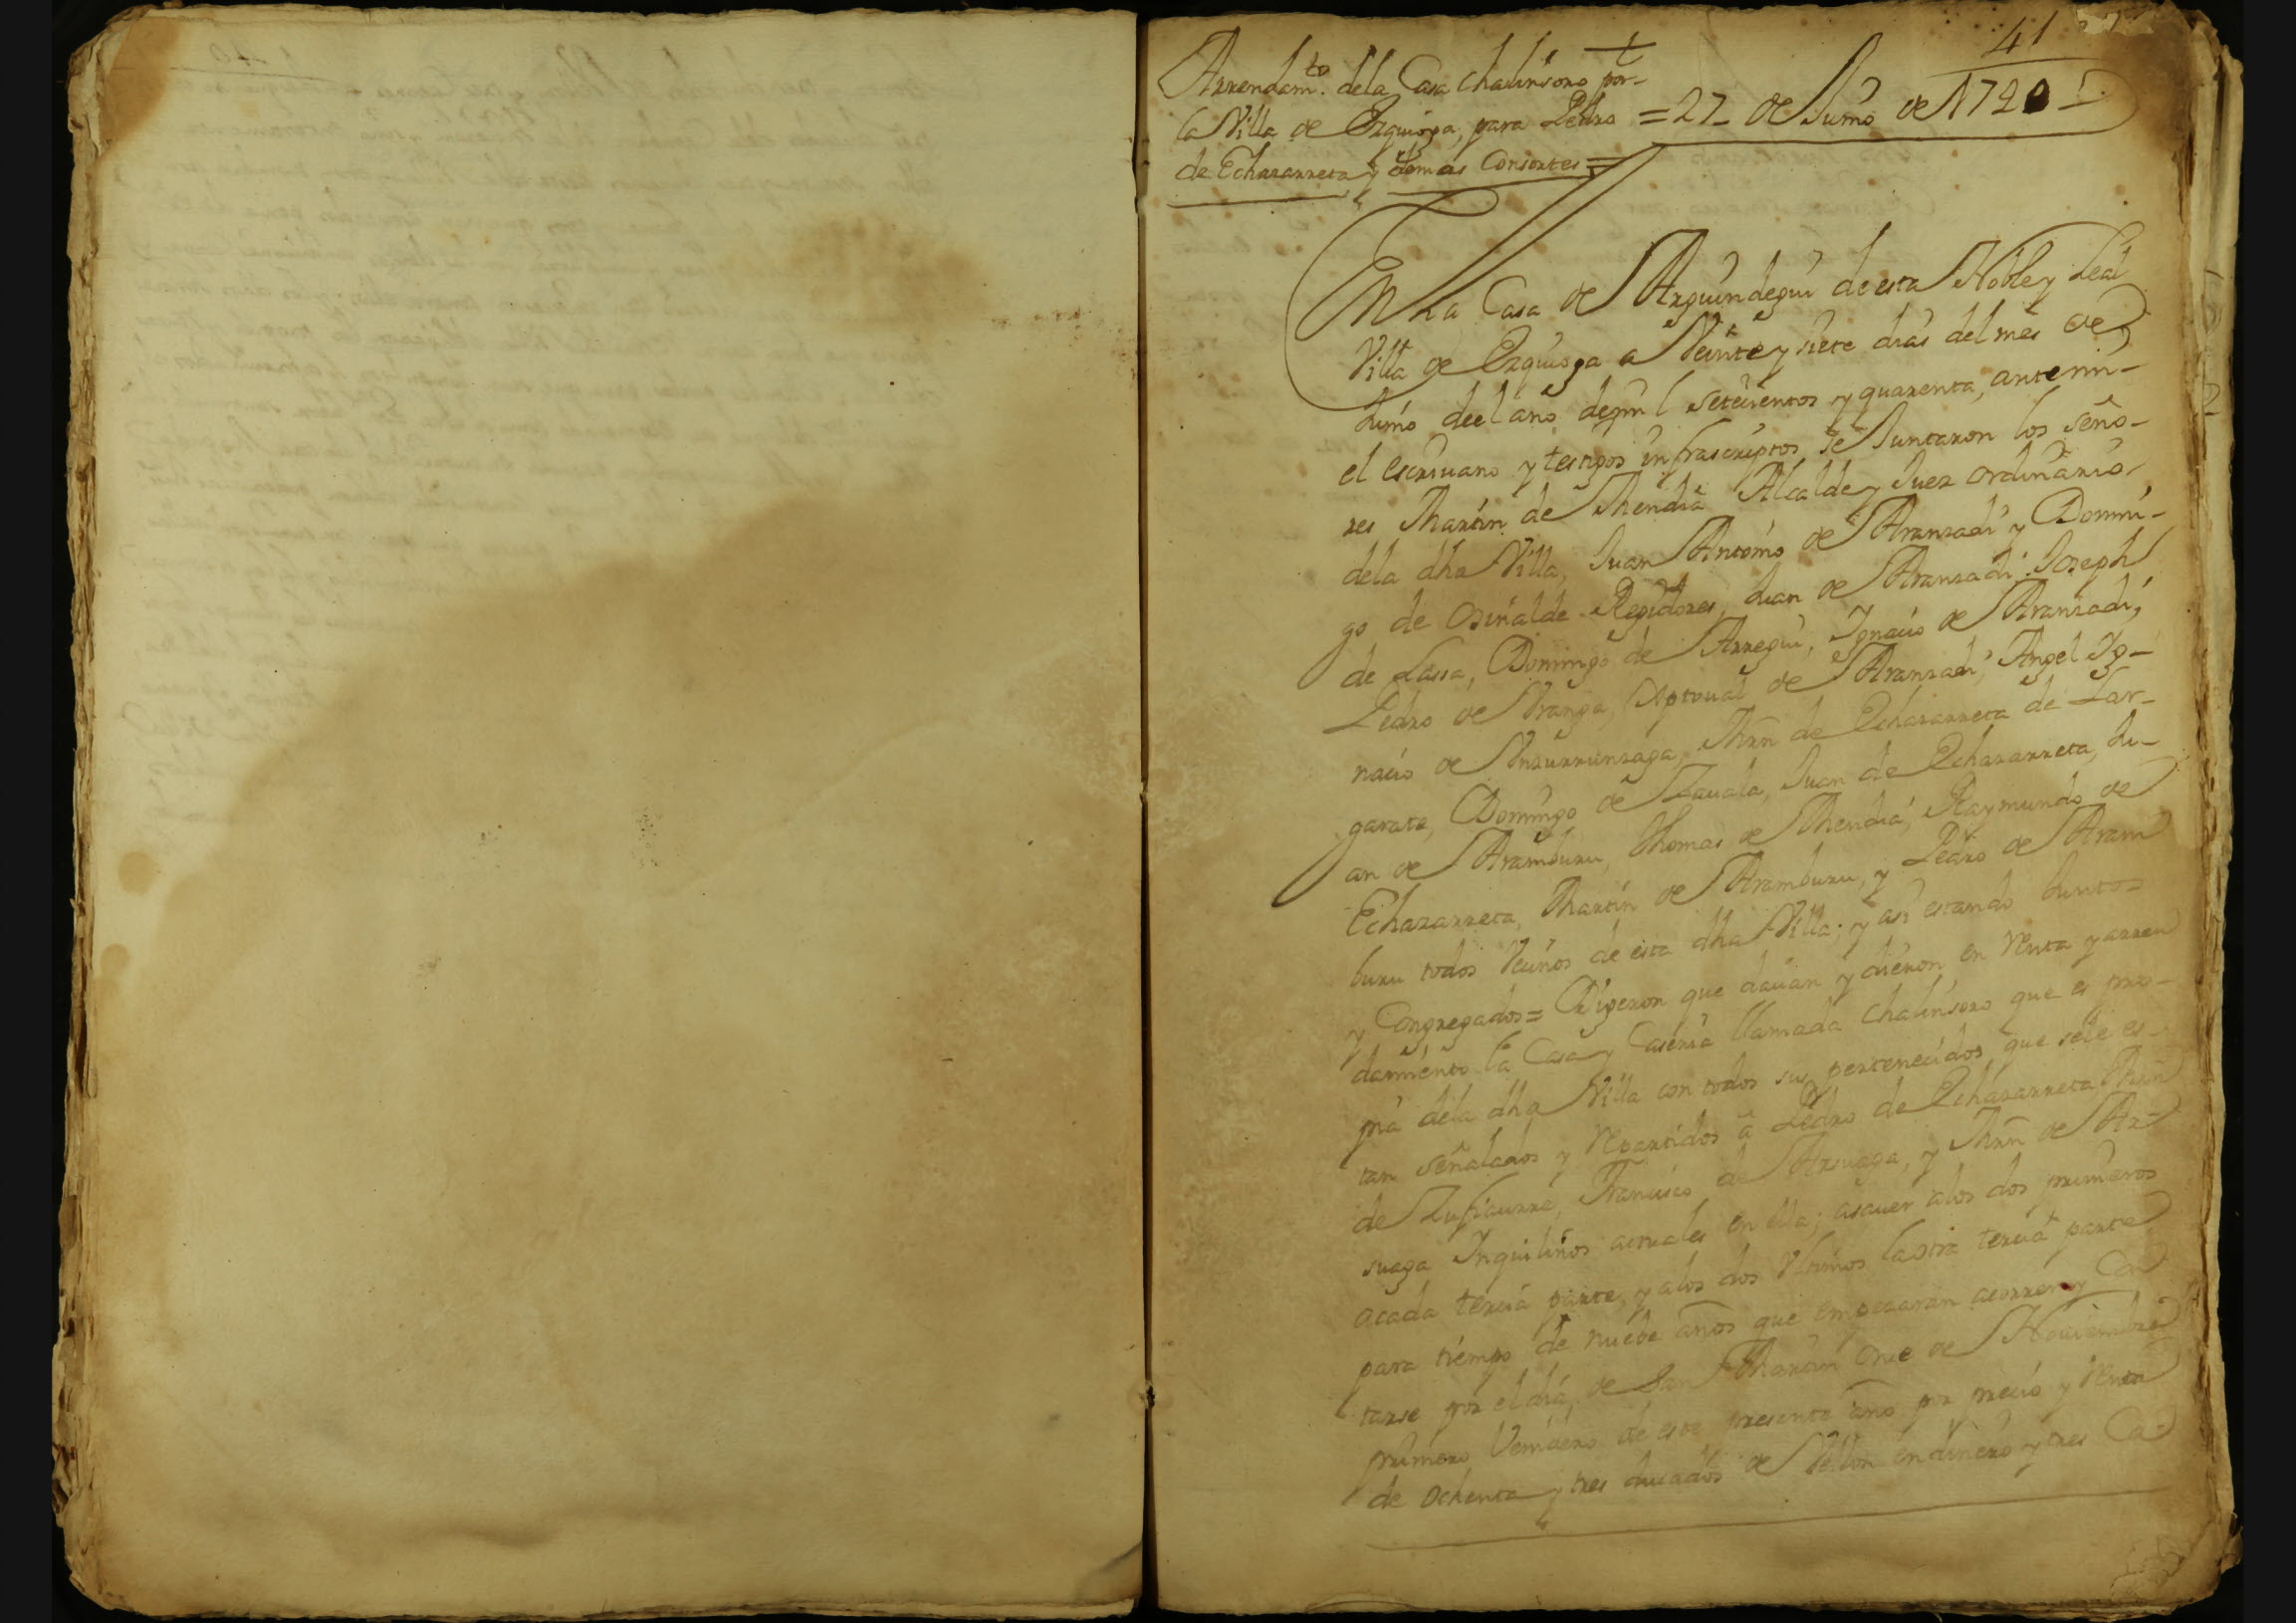 41
Arrendam.to dela Casa chalinsoro por-
la Villa de Ezquioga, para Pedro = 27 - de Junio de 1740 -
de Echazarreta y demas Consortes =
En La Casa de Arguindegui de esta Noble y Leal
Villa de Ezquioga a Veinte y siete dias del mes de
Junio de el año de mil setecientos y quarenta, ante mi
el escriuano y testigos infrascriptos, se Juntaron los seño-
res Martin de Mendia Alcalde y Juez ordinario
dela dha Villa, Juan Antonio de Aranzadi y Domin-
go de Osinalde Regidores, Juan de Aranzadi, Joseph
de Lassa, Domingo de Arregui, Ignacio de Aranzadi,
Pedro de Vranga, Xptoual de Aranzadi, Angel Ig-
nacio de Vnzurrunzaga, Mrn de Echazarreta de Lar-
garate, Domingo de Zauala, Juan de Echazarreta, Ju-
an de Aramburu, Thomas de Mendia, Raymundo de
Echazarreta, Martin de Aramburu, y Pedro de Aram
buru todos Vecinos de esta dha Villa; y asi estando Juntos
y Congregados = Dixeron que dauan y dieron en Renta y arren
damiento la Casa y Caseria llamada Chalinsoro que es pro-
pia dela dha Villa con todos sus pertenecidos, que sele es-
tan señalados y Repartidos â Pedro de Echazarreta, Mrn
de Zufiaurre, Francisco de Arsuaga, y Mrn de Ar-
suaga Inquilinos actuales en ella; asauer alos dos primeros
acada tercia parte, y alos dos Vltimos la otra tercia parte
para tiempo de nuebe años que empezaran acorrer y Con
tarse por el dia de San Martin onze de Nouiembre
primero Venidero de este presente año por precio y Renta
de ochenta y tres ducados de Vellon en dinero y tres Ca-